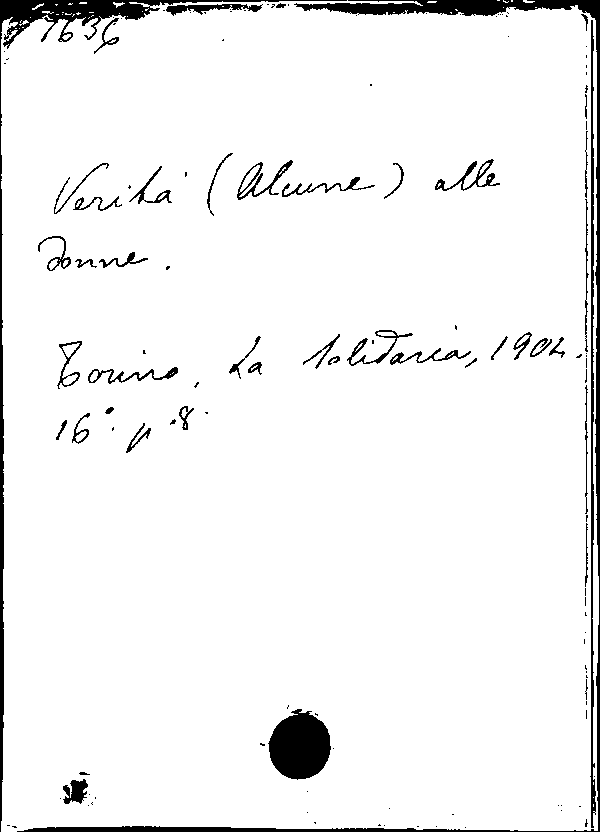 1636
Verità (Alcune) alle
donne.
Torino, La solidaria, 1904.
16°. p. 8.